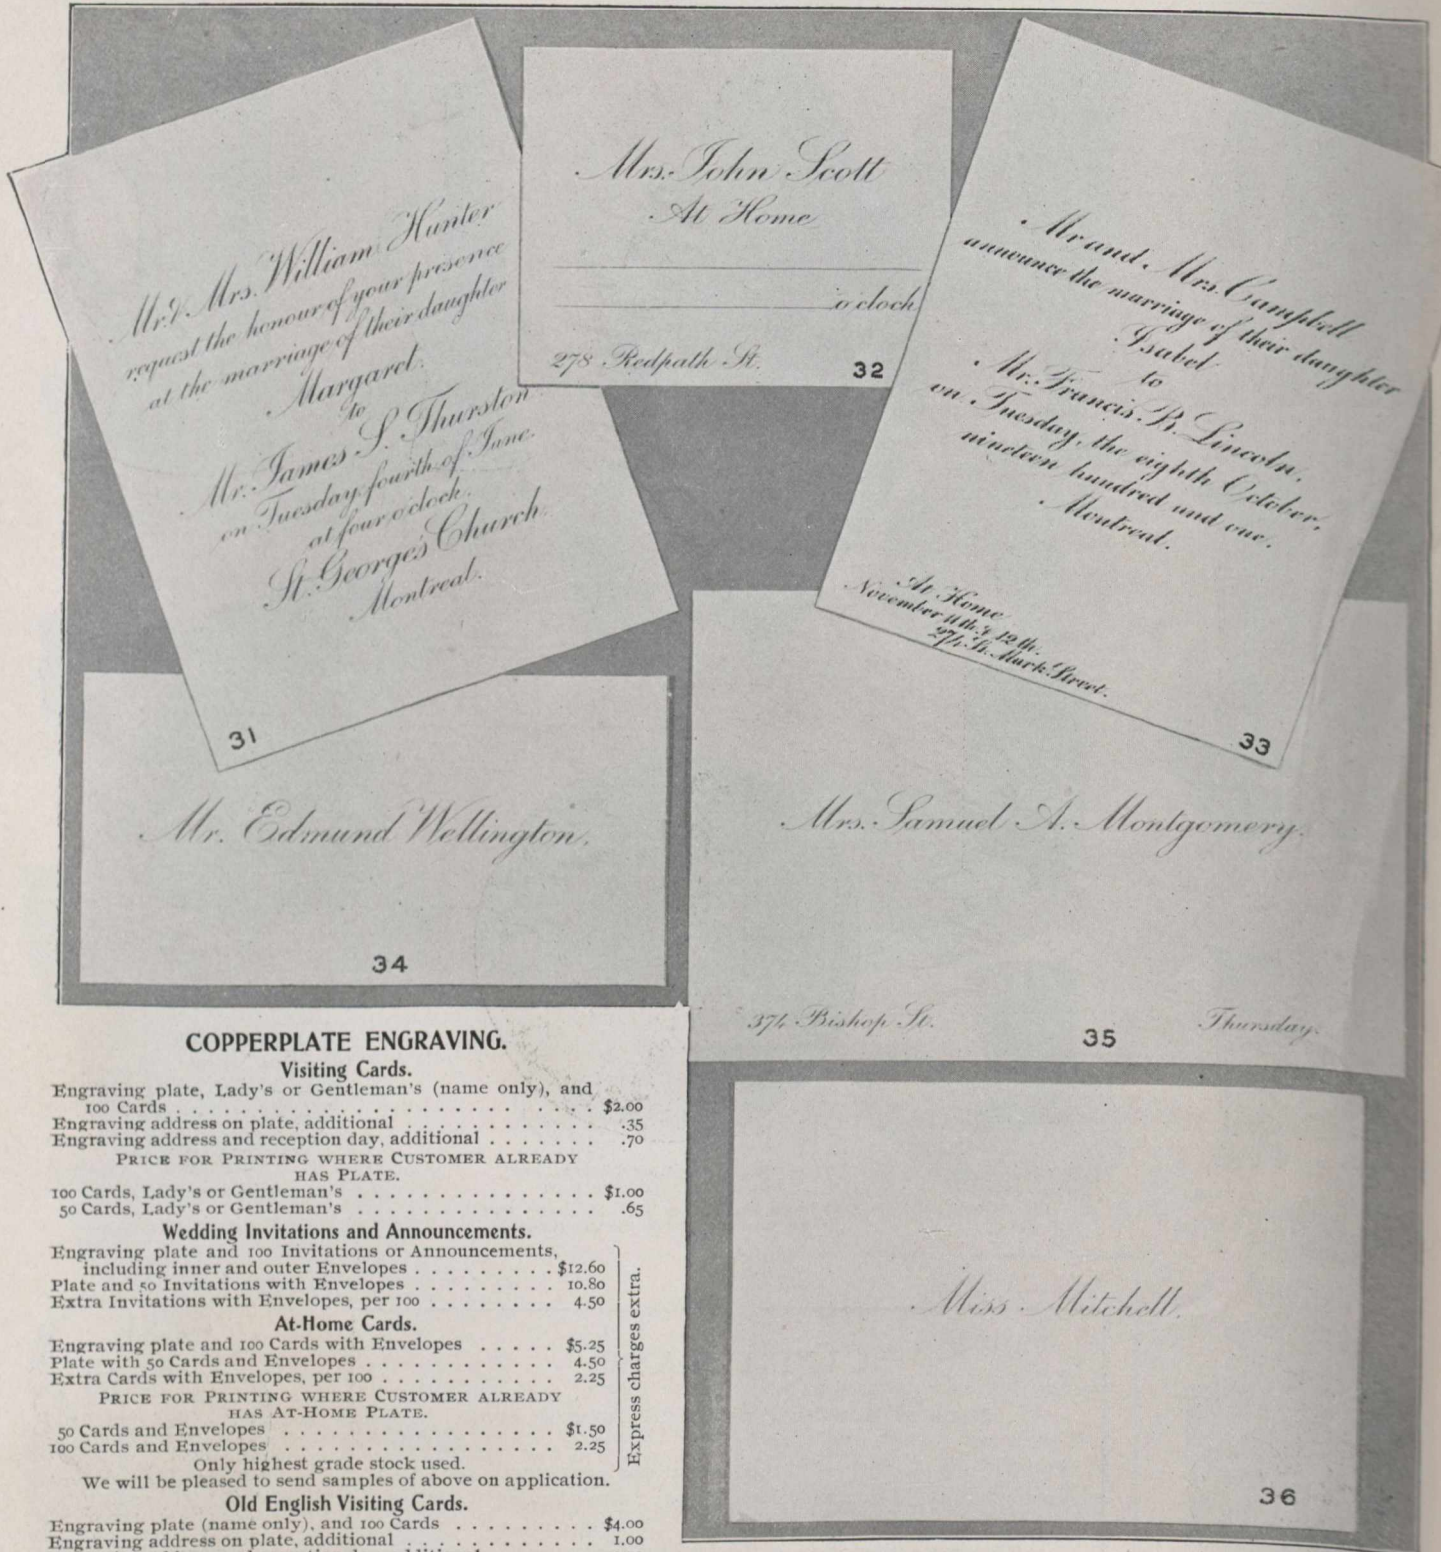 Mr. & Mrs. William Hunter
request the honour of your presence
at the marriage of their daughter
Margaret.
to
Mr. James S. Thurston
on Tuesday, fourth of June.
at four o'clock.
St. George's Church.
Montreal.
31
Mrs. John Scott
At Home
o'clock
278 Redpath St.
32
Mr and Mrs. Campbell
announce the marriage of their daughter
Isabel
to
Mr. Francis B. Lincoln,
on Tuesday, the eighth October,
nineteen hundred and one.
Montreal.
At Home
November 11th & 12th.
274 St. Mark Street.
33
Mr. Edmund Wellington.
34
Mrs. Samuel A. Montgomery.
374 Bishop St.
35
Thursday.
COPPERPLATE ENGRAVING.
Visiting Cards.
Engraving plate, Lady's or Gentleman's (name only), and
100 Cards . . . . . . . . . . $2.00
Engraving address on plate, additional . . . . . . . . . . .35
Engraving address and reception day, additional . . . . . . . .70
PRICE FOR PRINTING WHERE CUSTOMER ALREADY
HAS PLATE.
100 Cards, Lady's or Gentleman's . . . . . . . . . . $1.00
50 Cards, Lady's or Gentleman's . . . . . . . . . . .65
Wedding Invitations and Announcements.
Engraving plate and 100 Invitations or Announcements,
including inner and outer Envelopes . . . . . . . . . $12.60
Plate and 50 Invitations with Envelopes . . . . . . . . . 10.80
Extra Invitations with Envelopes, per 100 . . . . . . . . 4.50
At-Home Cards.
Engraving plate and 100 Cards with Envelopes . . . . . $5.25
Plate with 50 Cards and Envelopes . . . . . . . . . . 4.50
Extra Cards with Envelopes, per 100 . . . . . . . . . . 2.25
PRICE FOR PRINTING WHERE CUSTOMER ALREADY
HAS AT-HOME PLATE.
50 Cards and Envelopes . . . . . . . . . . $1.50
100 Cards and Envelopes . . . . . . . . . . 2.25
Express charges extra.
Only highest grade stock used.
We will be pleased to send samples of above on application.
Old English Visiting Cards.
Engraving plate (name only), and 100 Cards . . . . . . . . . $4.00
Engraving address on plate, additional . . . . . . . . . . 1.00
Miss Mitchell.
36